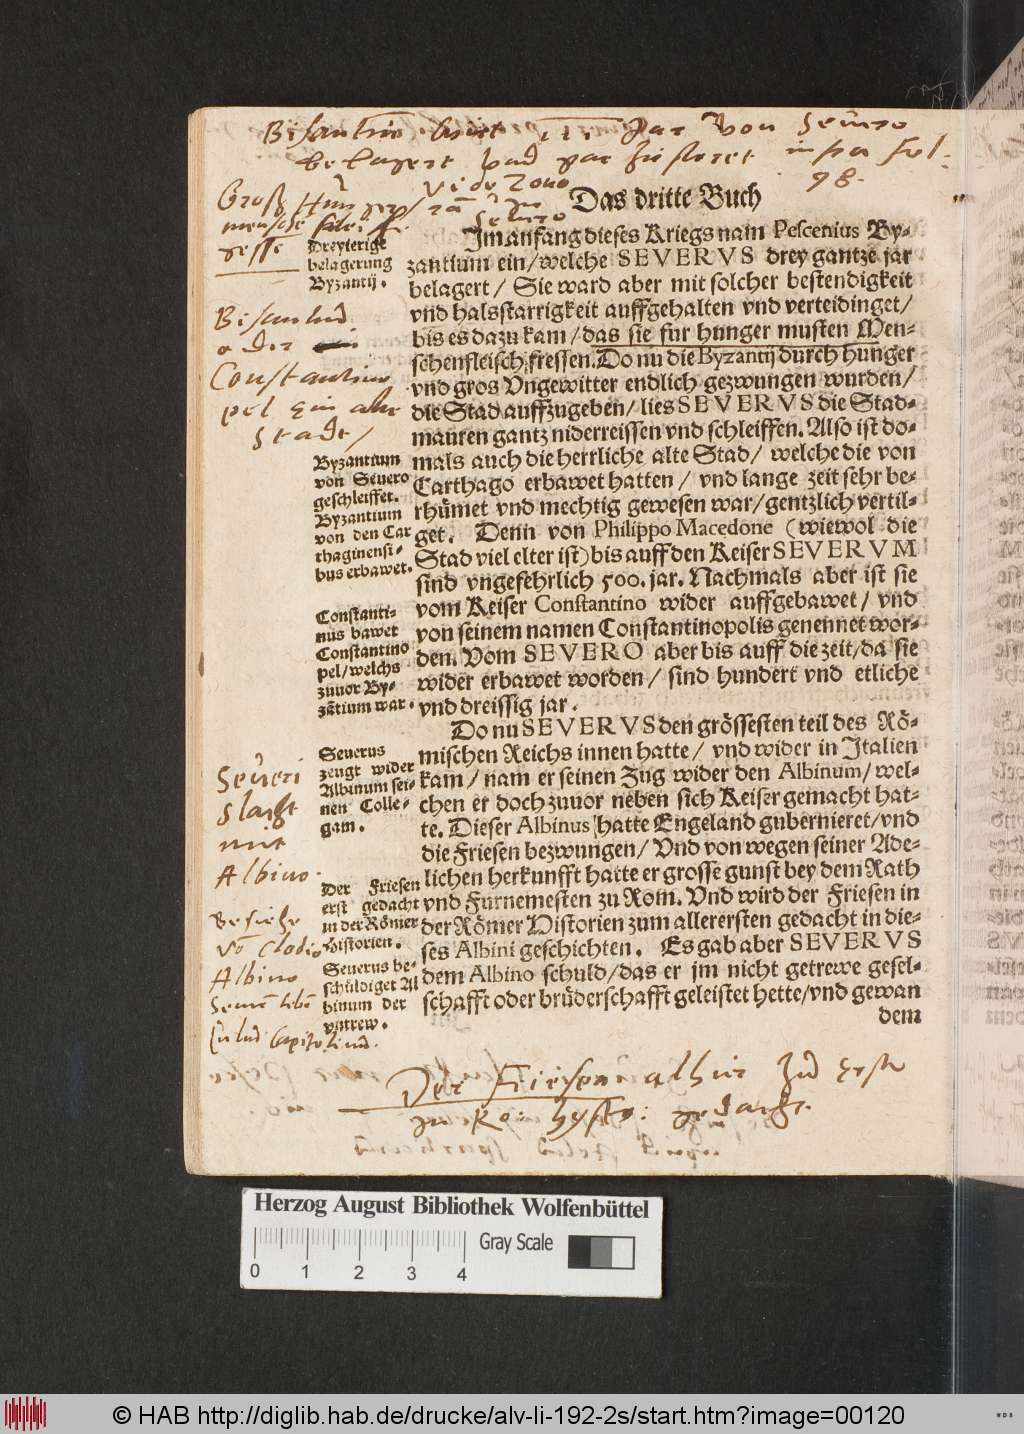 Bisantium wirt iii Jar von Seuero
belagert vnd gar zu storet infra fol.
98.
Vide Zona
Seuero
Groß Hunger/
mensche
gesse
Das dritte Buch
Jm anfang dieses Kriegs nam Pescenius By-
zantium ein/welche SEVERVS drey gantze jar
belagert/ Sie ward aber mit solcher bestendigkeit
vnd halsstarrigkeit auffgehalten vnd verteidinget/
bis es dazu kam/das sie fur hunger musten Men-
schenfleisch fressen. Do nu die Byzantij durch hunger
vnd gros Vngewitter endlich gezwungen wurden/
die Stad auffzugeben/ lies SEVERVS die Stad-
mauren gantz niderreissen vnd schleiffen. Also ist do-
mals auch die herrliche alte Stad/ welche die von
Carthago erbawet hatten/ vnd lange zeit sehr be-
rhümet vnd mechtig gewesen war/gentzlich vertil-
get. Denn von Philippo Macedone (wiewol die
Stad viel elter ist) bis auff den Keiser SEVERVM
sind vngefehrlich 500. jar. Nachmals aber ist sie
vom Keiser Constantino wider auffgebawet/ vnd
von seinem namen Constantinopolis genennet wor-
den. Vom SEVERO aber bis auff die zeit/da sie
wider erbawet worden/ sind hundert vnd etliche
vnd dreissig jar.
Do nu SEVERVS den grössesten teil des Rö-
mischen Reichs innen hatte/ vnd wider in Jtalien
kam/ nam er seinen Zug wider den Albinum/wel-
chen er doch zuuor neben sich Keiser gemacht hat-
te. Dieser Albinus hatte Engeland gubernieret/vnd
die Friesen bezwungen/ Vnd von wegen seiner Ade-
lichen herkunfft hatte er grosse gunst bey dem Rath
vnd Furnemesten zu Rom. Vnd wird der Friesen in
der Römer Historien zum allerersten gedacht in die-
ses Albini geschichten. Es gab aber SEVERVS
dem Albino schuld/das er jm nicht getrewe gesel-
schafft oder brüderschafft geleistet hette/vnd gewan
dem
Dreyierige
belagerung
Byzantij.
Bisantium
oder
Constantino
pel ein alte
Stadt/
Byzantium
von Seuero
geschleiffet.
Byzantium
von den Car
thaginensi-
bus erbawet.
Constanti-
nus bawet
Constantino
pel/welchs
zuuor By-
zātium war.
Seuerus
zeugt wider
Albinum sei-
nen Colle-
gam.
Seueri
slacht
mit
Albino.
Der Friesen
erst gedacht
in der Römer
Historien.
Besiehe
vō Clodio
Albino
Seuerus be-
schüldiget Al
binum der
vntrew.
Capitolinum.
Der Friesen alhier zu erst
in Ro: hysto: gedacht.
Herzog August Bibliothek Wolfenbüttel
Gray Scale
0 1 2 3 4
© HAB http://diglib.hab.de/drucke/alv-li-192-2s/start.htm?image=00120